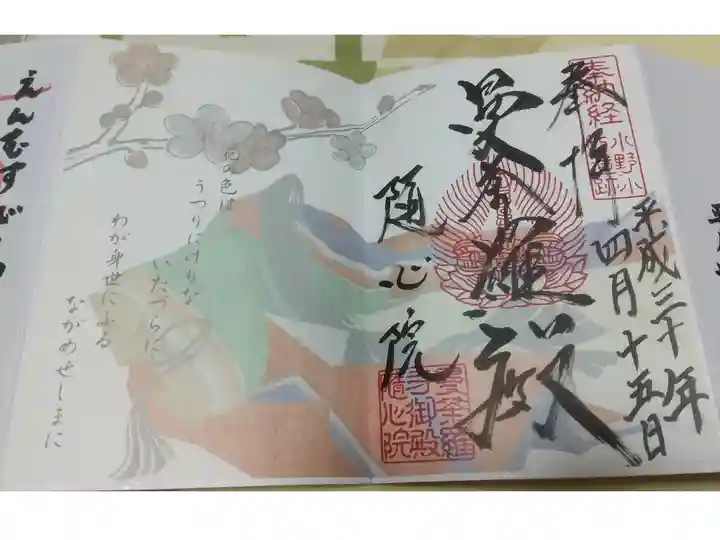 奉納経
小野小
町
跡
奉拝
平成三十年
四月十五日
曼荼羅殿
随心院
曼荼羅
寺御殿
随心院
花の色は
うつりにけりな
いたづらに
わが身世にふる
ながめせしまに
えんむすび